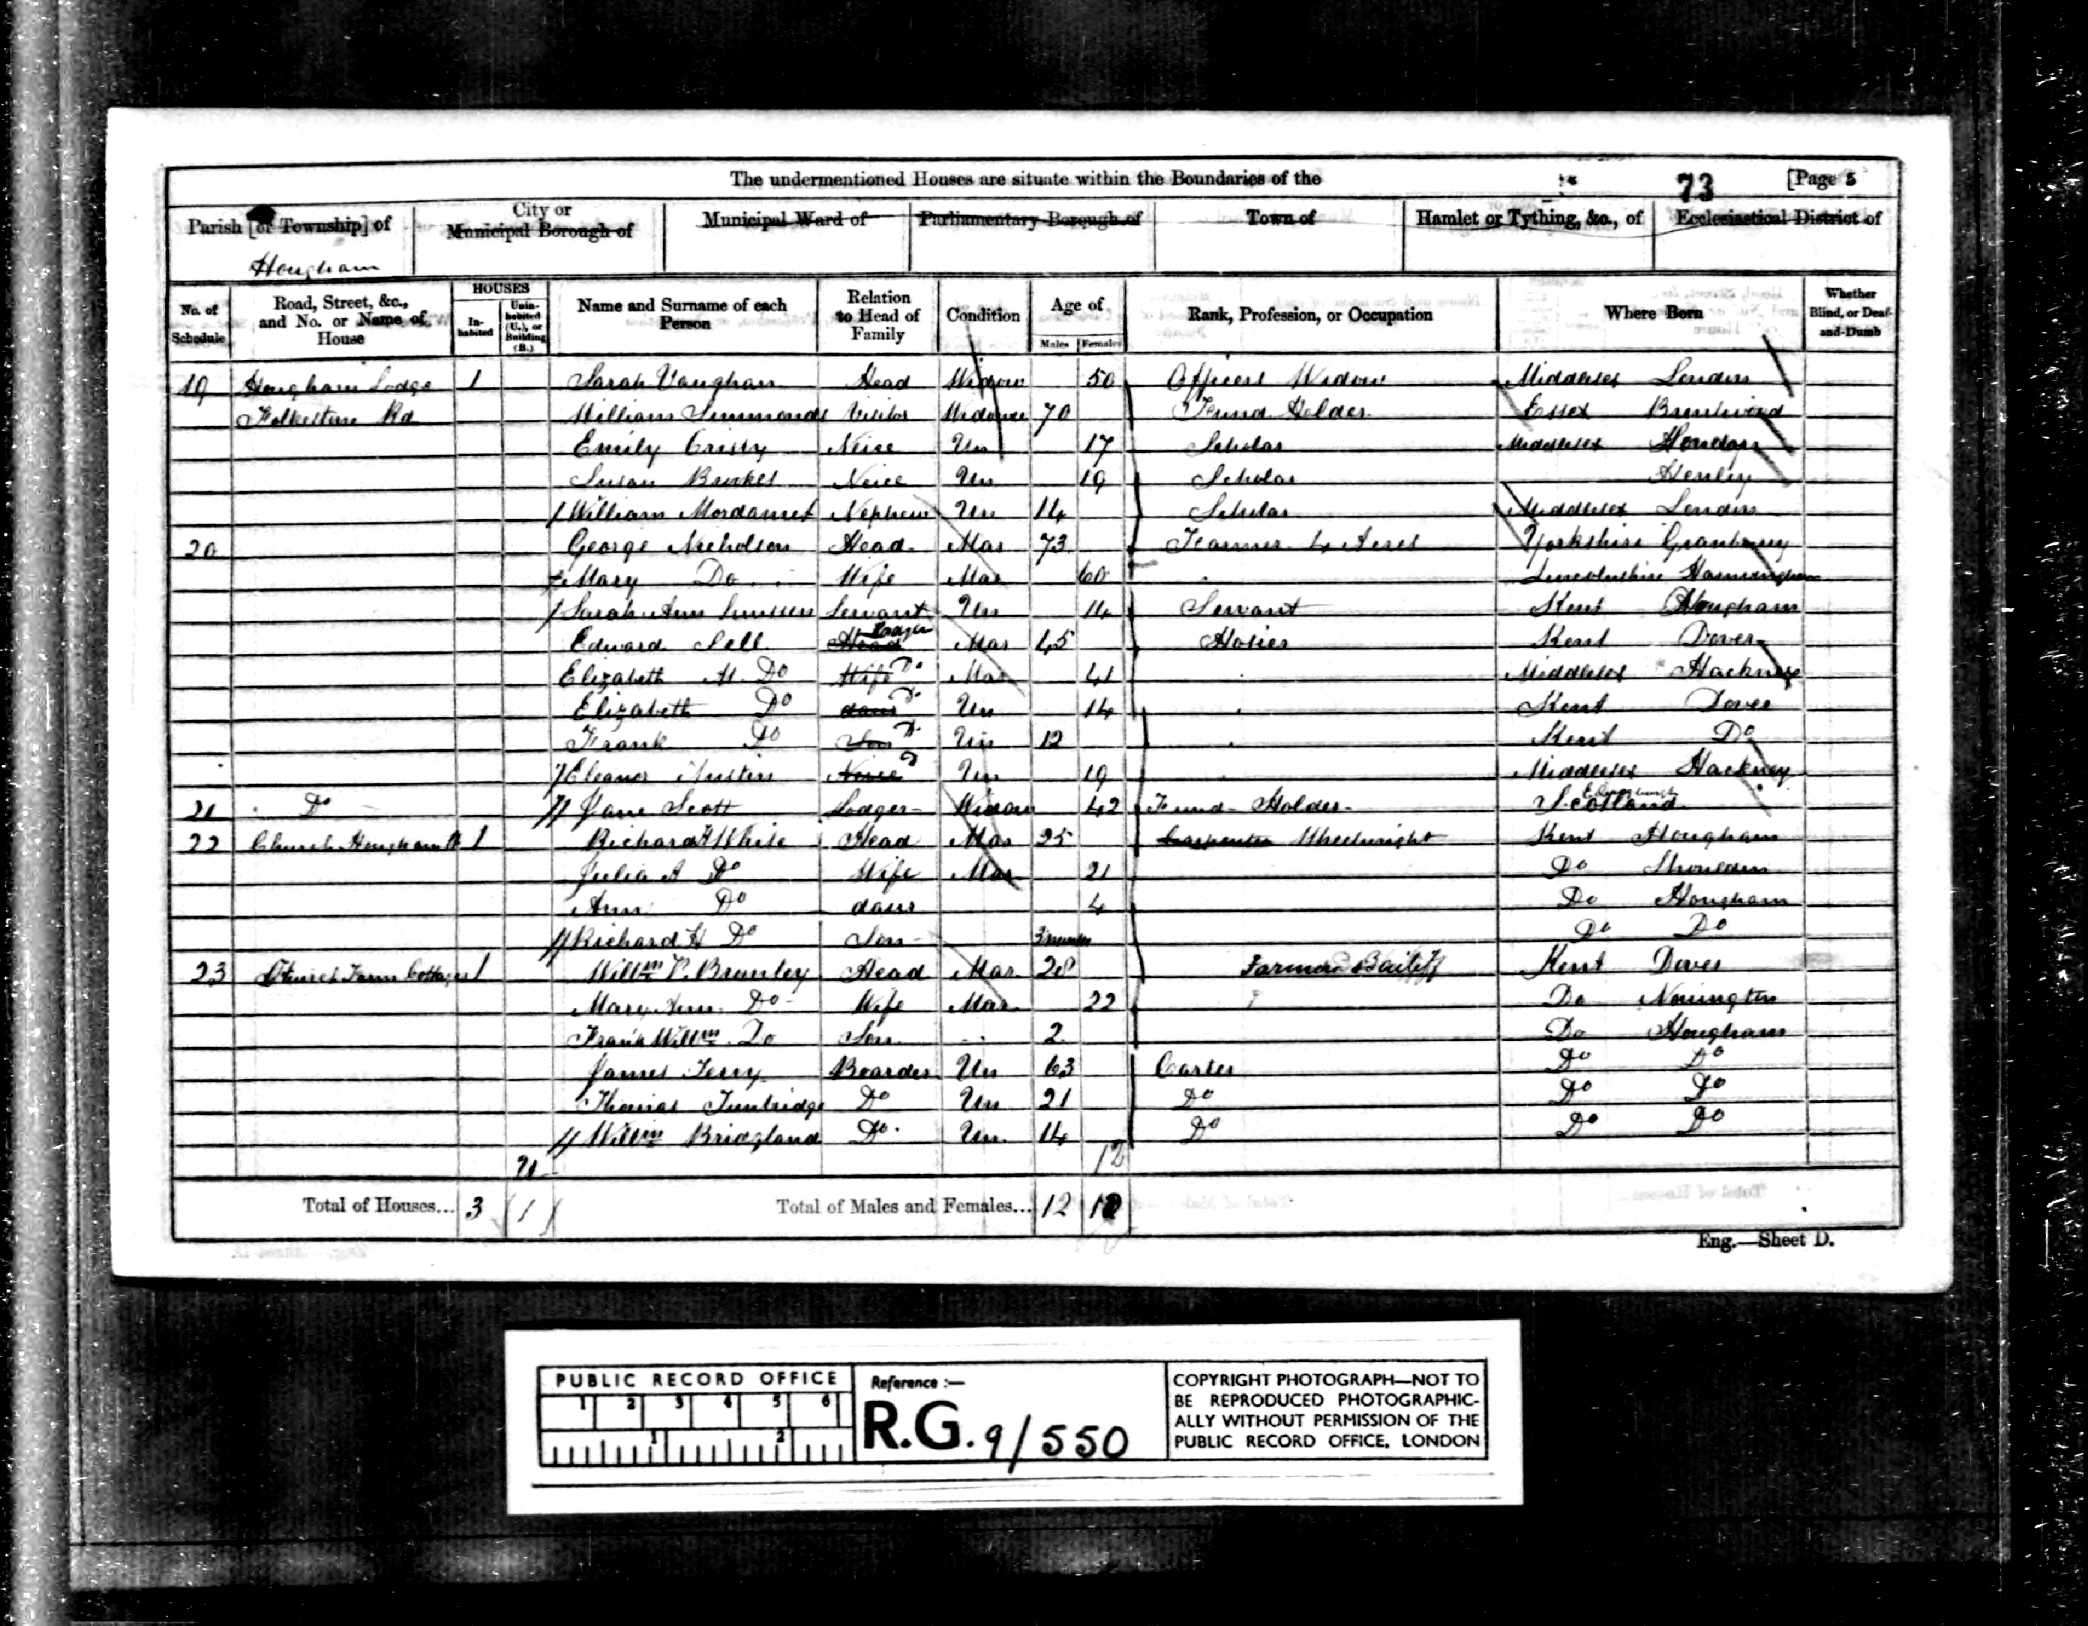 The undermentioned Houses are situate within the Boundaries of the 73 [Page 5
Parish [or Township] of City or Municipal Borough of Municipal Ward of Parliamentary Borough of Town of Hamlet or Tything, &c., of Ecclesiastical District of
Hougham
No. of Schedule Road, Street, &c., and No. or Name of House HOUSES Inhabited Uninhabited (U.), or Building (B.) Name and Surname of each Person Relation to Head of Family Condition Age of Males Females Rank, Profession, or Occupation Where Born Whether Blind, or Deaf-and-Dumb
19 Hougham Lodge 1 Sarah Vaughan Head Widow 50 Officers Widow Middlesex London
Folkestone Rd William Simmonds Visitor 70 Fund Holder Essex Brentwood
Emily Neice Un 17 Scholar Middlesex Hendon
Susan Neice Un 19 Scholar Henley
William Nephew Un 14 Scholar Middlesex London
20 George Nicholson Head Mar 73 Farmer 4 Acres Yorkshire
Mary Do Wife Mar 60 Lincolnshire
Sarah Ann Servant Un 14 Servant Kent Hougham
Edward Sell Head Lodger Mar 45 Hosier Kent Dover
Elizabeth M Do Wife Do Mar 41 Middlesex Hackney
Elizabeth Do daur Do Un 14 Kent Dover
Frank Do Son Do Un 12 Kent Do
Eleanor Austin Neice Do Un 19 Middlesex Hackney
21 Do Jane Scott Lodger Widow 42 Fund Holder Scotland Edinburgh
22 Church Hougham 1 Richard H White Head Mar 25 Carpenter Wheelwright Kent Hougham
Julia A Do Wife Mar 21 Do
Ann Do daur 4 Do Hougham
Richard H Do Son 3 months Do Do
23 Church Farm Cottages 1 Willm P. Brumley Head Mar 28 Farmers Bailiff Kent Dover
Mary Ann Do Wife Mar 22 Do Nonington
Frank Willm Do Son 2 Do Hougham
James Terry Boarder Un 63 Carter Do Do
Thomas Tuntridge Do Un 21 Do Do Do
Willm Bridgland Do Un 14 Do Do Do
12
Total of Houses... 3 1 Total of Males and Females... 12 12
Eng.—Sheet D.
PUBLIC RECORD OFFICE
1 2 3 4 5 6
1 2
Reference :—
R.G. 9/550
COPYRIGHT PHOTOGRAPH—NOT TO
BE REPRODUCED PHOTOGRAPHIC-
ALLY WITHOUT PERMISSION OF THE
PUBLIC RECORD OFFICE, LONDON